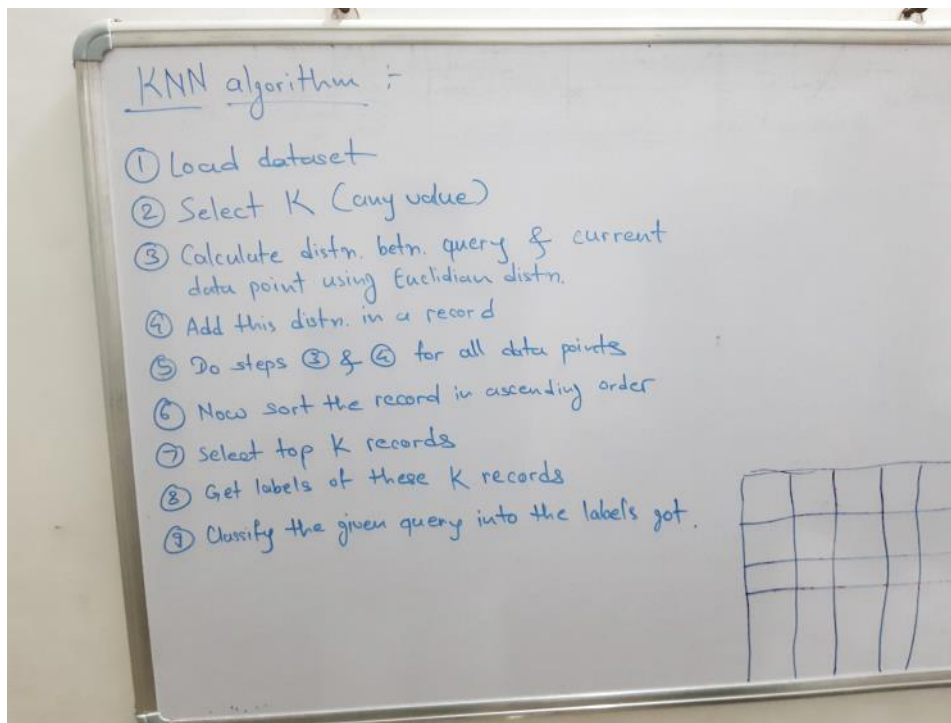 KNN algorithm :-
① Load dataset
② Select K (any value)
③ Calculate distn. betn. query & current
data point using Euclidian distn.
④ Add this distn. in a record
⑤ Do steps ③ & ④ for all data points
⑥ Now sort the record in ascending order
⑦ Select top K records
⑧ Get labels of these K records
⑨ Classify the given query into the labels got.